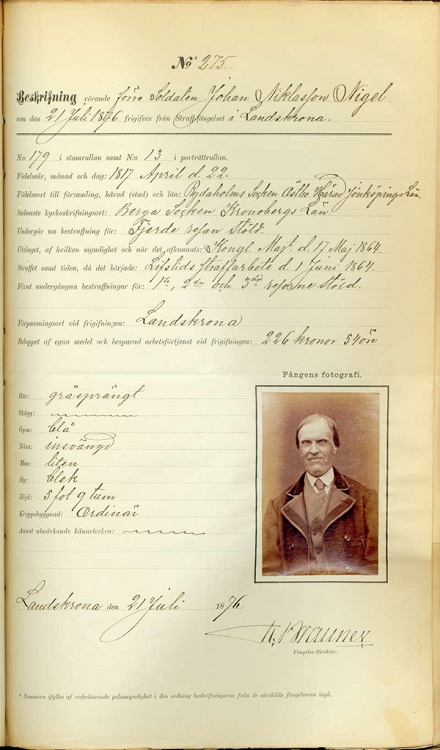 No 275
Beskrifning rörande förre Soldaten Johan Niklasson Nigel
som den 21 Juli 1876 frigifves från Straffängelset i Landskrona.
N:o 179 i stamrullan samt N:o 13 i porträttrullan.
Födelseår, månad och dag: 1817 April d. 22.
Födelseort till församling, härad (stad) och län: Rydaholms Socken Östbo Härad Jönköpings Län.
Senaste kyrkoskrifningsort: Berga Socken Kronobergs Län
Undergår nu bestraffning för: Fjerde resan Stöld.
Utslaget, af hvilken myndighet och när det afkunnats: Kongl. Maj:t d. 17 Maj 1864.
Straffet samt tiden, då det började: Lifstids straffarbete d. 1 Juni 1864.
Förut undergångna bestraffningar för: 1sta, 2dra och 3dje resorne Stöld.
Förpassningsort vid frigifningen: Landskrona
Beloppet af egna medel och besparad arbetsförtjenst vid frigifningen: 226 kronor 54 öre
Fångens fotografi.
Hår: gråsprängt
Skägg:
Ögon: blå
Näsa: insvängd
Mun: liten
Hy: blek
Höjd: 5 fot 9 tum
Kroppsbyggnad: Ordinär
Annat utmärkande kännetecken:
Landskrona den 21 Juli 1876
Fängelse-Direktör.
* Numern ifylles af vederbörande polismyndighet i den ordning beskrifningarna från de särskilda fängelserna ingå.